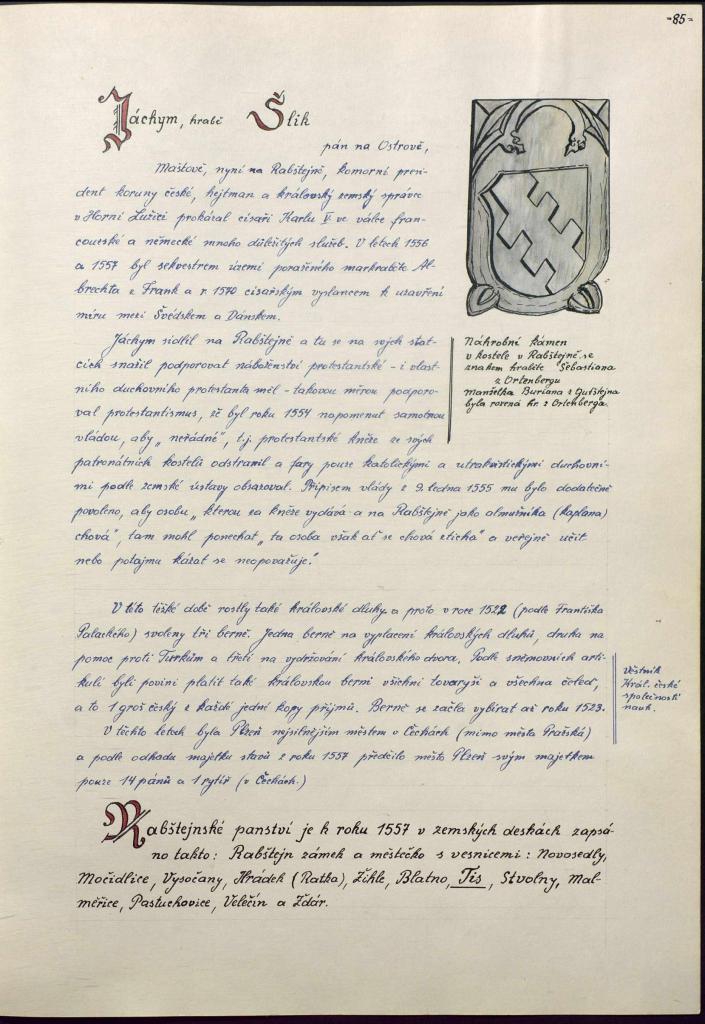 -85-
Jáchym, hrabě Šlik
pán na Ostrově,
Maštově, nyní na Rabštejně, komorní presi-
dent koruny české, hejtman a královský zemský správce
v Horní Lužici prokázal císaři Karlu V. ve válce fran-
couské a německé mnoho důležitých služeb. V letech 1556
a 1557 byl sekvestrem území poraženého markraběte Al-
brechta z Frank a r. 1570 císařským vyslancem k uzavření
míru mezi Švédskem a Dánskem.
Jáchym sídlil na Rabštejně a tu se na svých stat-
cích snažil podporovat náboženství protestantské - i vlast-
ního duchovního protestanta měl - takovou měrou podporo-
val protestantismus, že byl roku 1554 napomenut samotnou
vládou, aby „neřádné", t.j. protestantské kněze ze svých
patronátních kostelů odstranil a fary pouze katolickými a utrakvistickými duchovní-
mi podle zemské ústavy obsazoval. Přípisem vlády z 9. ledna 1555 mu bylo dodatečně
povoleno, aby osobu „kterou za kněze vydává a na Rabštejně jako almužníka (kaplana)
chová", tam mohl ponechat „ta osoba však ať se chová zticha" a veřejně učit
nebo potajmu kázat se neopovažuje."
Náhrobní kámen
v kostele v Rabštejně se
znakem hraběte Šebastiana
z Ortenbergu
Manželka Buriana z Gutštejna
byla rozená hr. z Ortenberga.
V této těžké době rostly také královské dluhy a proto v roce 1522 (podle Františka
Palackého) svoleny tři berně. Jedna berně na vyplacení královských dluhů, druhá na
pomoc proti Turkům a třetí na vydržování královského dvora. Podle sněmovních arti-
kulí byli povini platit také královskou berni všichni tovaryši a všechna čeleď,
a to 1 groš český z každé jedné kopy příjmů. Berně se začla vybírat až roku 1523.
V těchto letech byla Plzeň nejsilnějším městem v Čechách (mimo města Pražská)
a podle odhadu majetku stavů z roku 1557 předčilo město Plzeň svým majetkem
pouze 14 pánů a 1 rytíř (v Čechách.)
Věstník
Král. české
společnosti
nauk.
Rabštejnské panství je k roku 1557 v zemských deskách zapsá-
no takto: Rabštejn zámek a městečko s vesnicemi: Novosedly,
Močidlice, Vysočany, Hrádek (Ratka), Žihle, Blatno, Tis, Stvolny, Mal-
měřice, Pastuchovice, Velečín a Žďár.